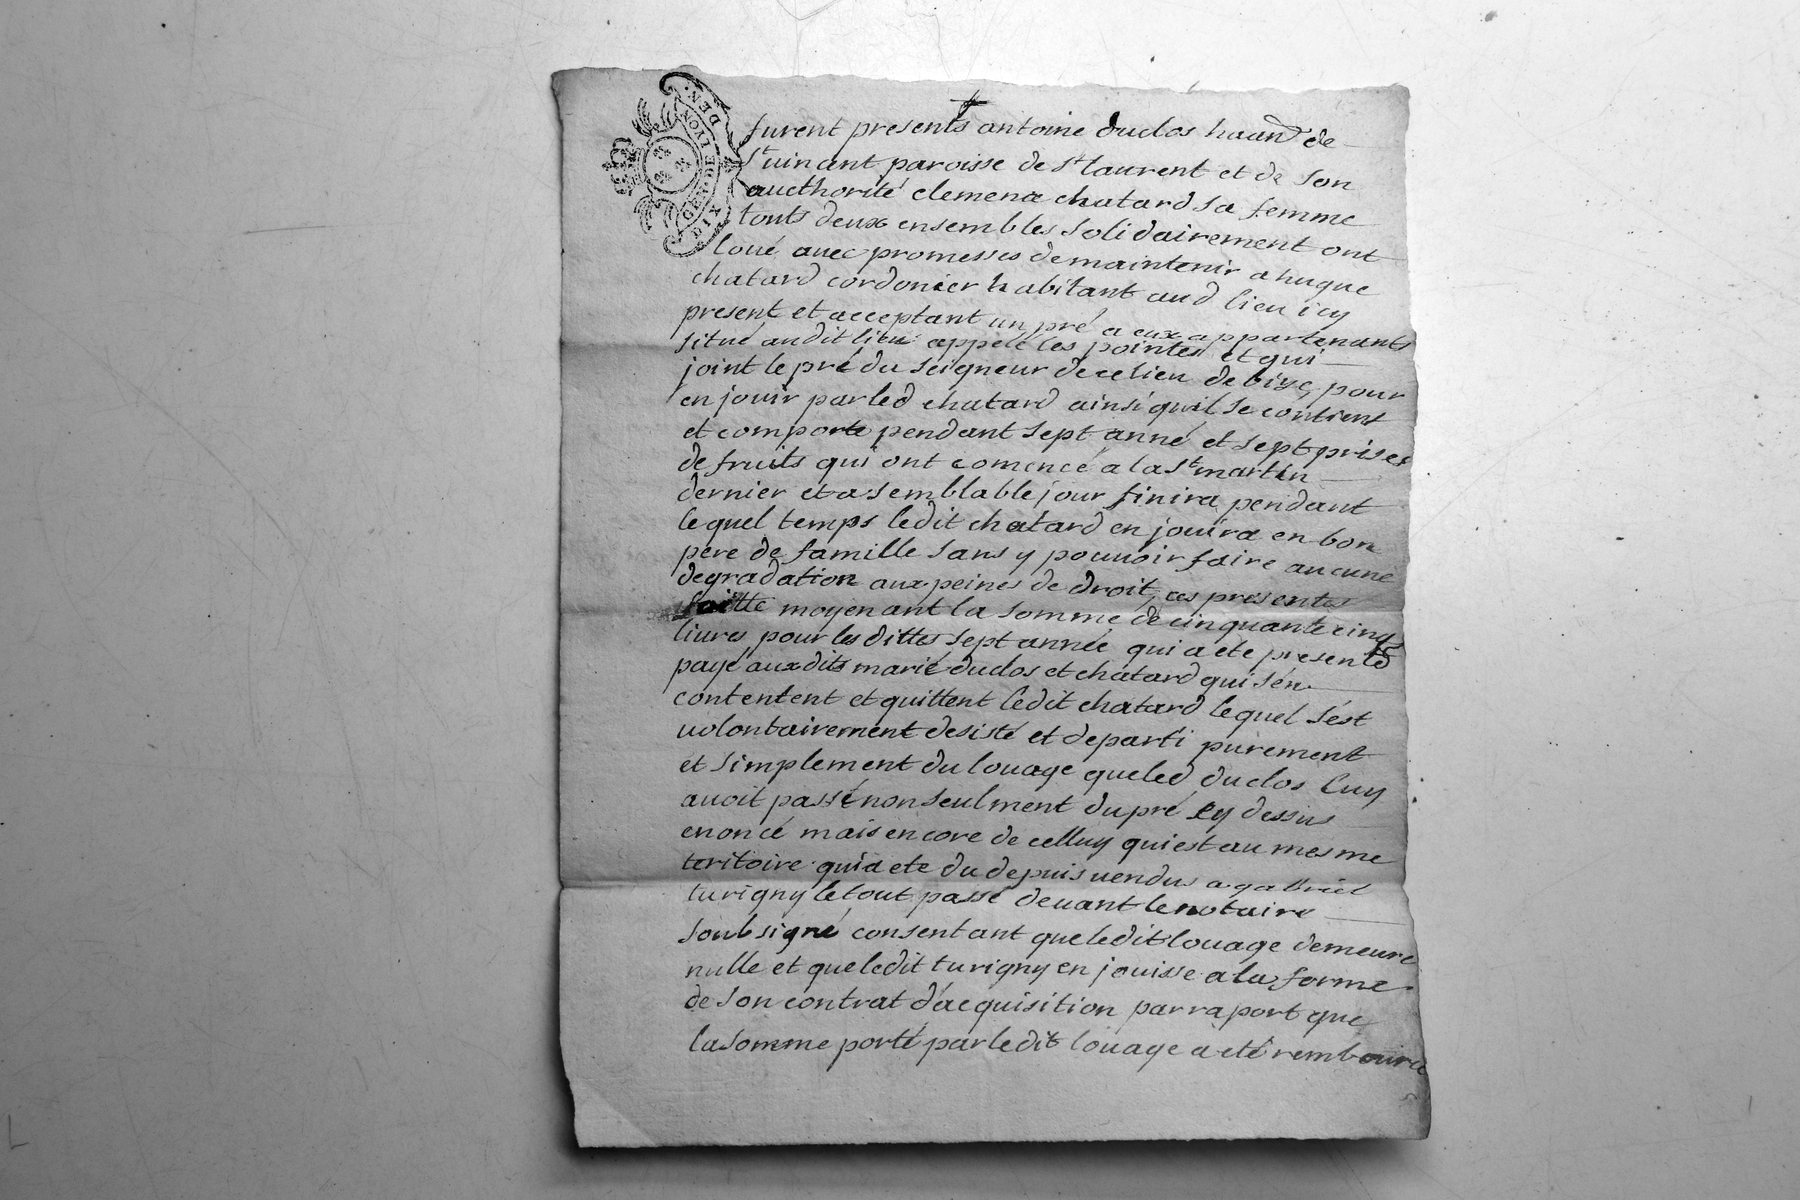 furent presents antoine duclos haand de
St uinant paroisse de St laurent et de son
aucthorité clemence chatard sa femme
touts deux ensembles solidairement ont
loué avec promesses de maintenir a hugue
chatard cordonier habitant aud lieu icy
present et acceptant un pré a eux appartenants
situé au dit lieu appelé les pointes et qui
joint le pré du seigneur de ce lieu de bize, pour
en jouir par led chatard ainsi quil se contient
et comporte pendant sept anné et sept prises
de fruits qui ont comencé a la St martin
dernier et a semblable jour finira pendant
lequel temps ledit chatard en jouira en bon
pere de famille sans y pouvoir faire aucune
degradation aux peines de droit, ces presentes
faitte moyenant la somme de cinquante cinq
livres pour les dittes sept année qui a été present
payé aux dits marié duclos et chatard qui s'én
contentent et quittent ledit chatard lequel s'ést
uolontairement desisté et departi purement
et simplement du louage que led duclos luy
auoit passé non seulment du pré cy dessus
enoncé mais encore de celluy qui est au mesme
teritoire qui a ete du depuis uendus a gabriel
turigny le tout passé deuant le notaire
soubsigné consentant que ledit louage demeure
nulle et que ledit turigny en jouisse a la forme
de son contrat d'acquisition par raport que
la somme porté par ledit louage a eté remboursé
DEN.
GNED DE LYON